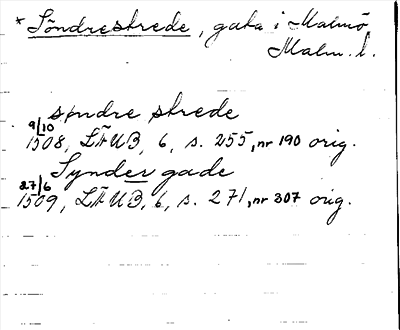 * Söndrestrede, gata i Malmö,
Malm. l.
søndre strede
9/10
1508, LÄUB, 6, s. 255, nr 190 orig.
Synder gade
27/6
1509, LÄUB, 6, s. 271, nr 307 orig.